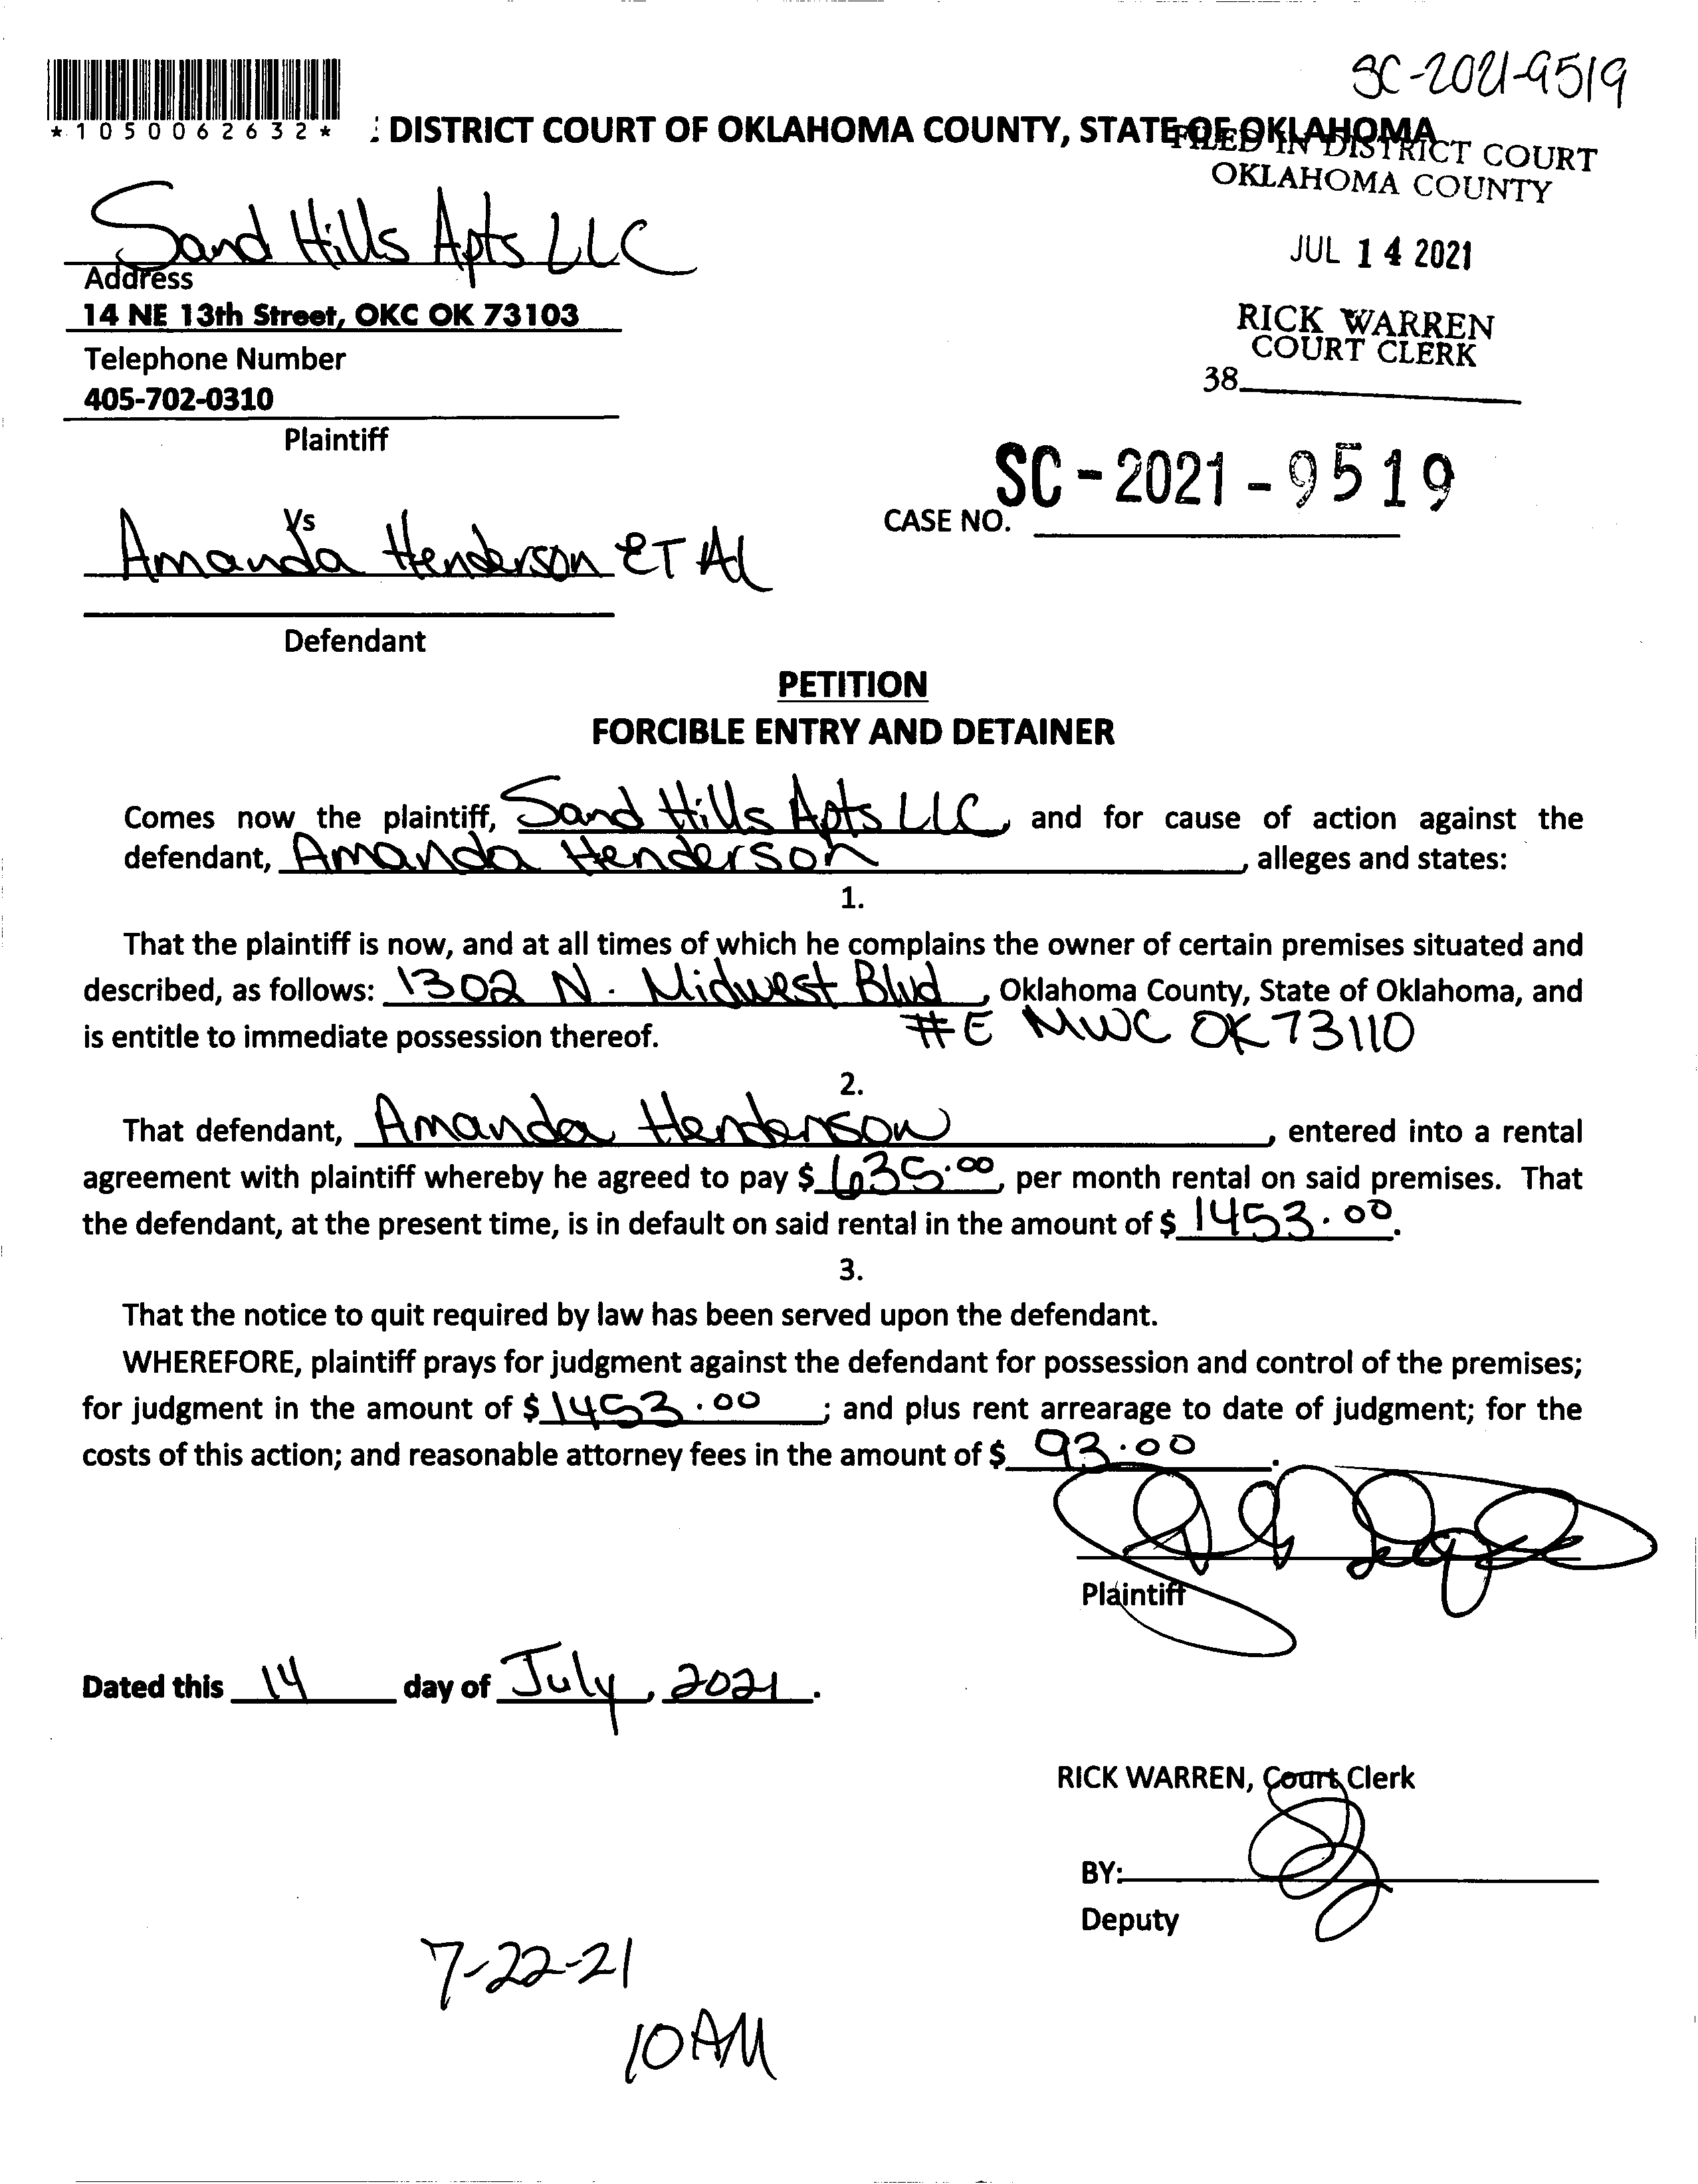 SC-2021-9519
*1050062632*
: DISTRICT COURT OF OKLAHOMA COUNTY, STATE OF OKLAHOMA
FILED IN DISTRICT COURT
OKLAHOMA COUNTY
Sand Hills Apts LLC
JUL 14 2021
Address
14 NE 13th Street, OKC OK 73103
RICK WARREN
COURT CLERK
Telephone Number
38
405-702-0310
Plaintiff
SC-2021-9519
CASE NO.
Vs
Amanda Henderson ET Al
Defendant
PETITION
FORCIBLE ENTRY AND DETAINER
Comes now the plaintiff, Sand Hills Apts LLC, and for cause of action against the
defendant, Amanda Henderson, alleges and states:
1.
That the plaintiff is now, and at all times of which he complains the owner of certain premises situated and
described, as follows: 1302 N. Midwest Blvd, Oklahoma County, State of Oklahoma, and
is entitle to immediate possession thereof. #E MWC OK 73110
2.
That defendant, Amanda Henderson, entered into a rental
agreement with plaintiff whereby he agreed to pay $ 635.00, per month rental on said premises. That
the defendant, at the present time, is in default on said rental in the amount of $ 1453.00.
3.
That the notice to quit required by law has been served upon the defendant.
WHEREFORE, plaintiff prays for judgment against the defendant for possession and control of the premises;
for judgment in the amount of $ 1453.00; and plus rent arrearage to date of judgment; for the
costs of this action; and reasonable attorney fees in the amount of $ 93.00.
Plaintiff
Dated this 14 day of July, 2021.
RICK WARREN, Court Clerk
BY:
Deputy
7-22-21
10AM